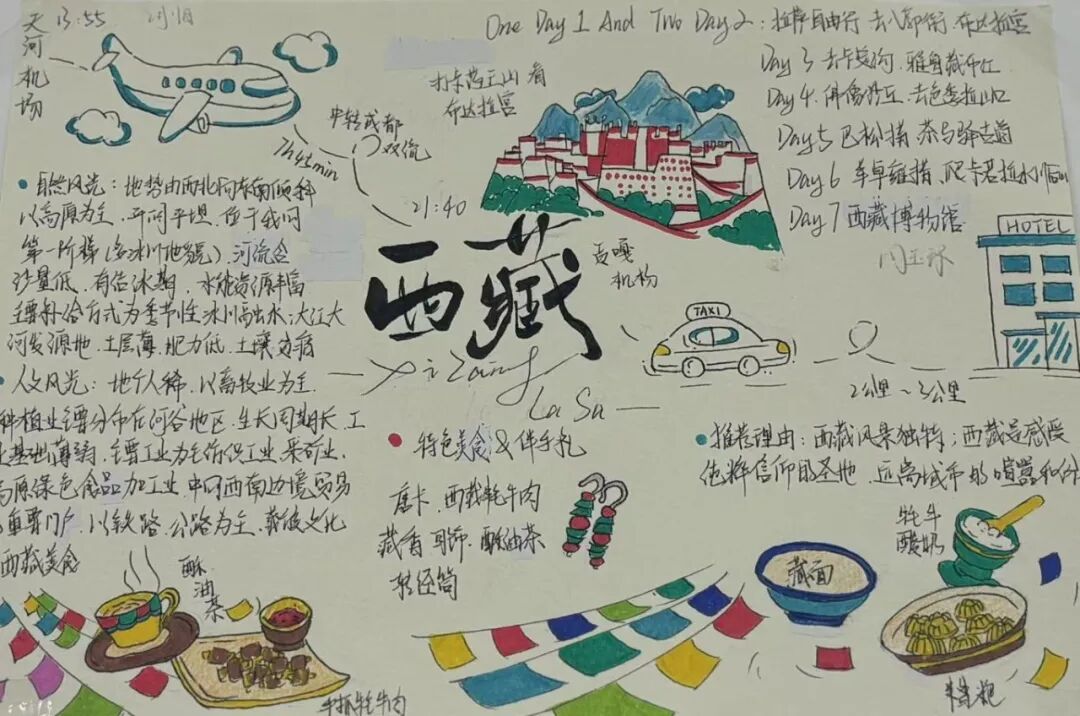 天河机场
13:55
7h45min
中转成都
双流
21:40
打卡药王山 看
布达拉宫
One Day 1 And Two Day 2：拉萨自由行 去八郎街 布达拉宫
Day 3 去卡
Day 4
Day 5 巴松措 茶马驿古道
Day 6 羊卓雍措、爬卡若拉冰川
Day 7 西藏博物馆
HOTEL
贡嘎
机场
TAXI
2公里～3公里
西藏
Xi Zang
La Sa
自然风光：地势由西北向东南倾斜
以高原为主，开阔平坦，位于我国
第一阶梯（多冰川地貌）河流含
沙量低，有结冰期，水能资源丰富
主要补给方式为季节性冰川融水，大江大
河发源地，土层薄，肥力低，土壤贫瘠
人文风光：地广人稀，以畜牧业为主
种植业主要分布在河谷地区，生长周期长，工
业基础薄弱，主要工业为毛纺织工业、采矿业、
高原绿色食品加工业，中国西南边境贸易
重要门户，以铁路、公路为主，藏传文化
西藏美食
特色美食&伴手礼
唐卡、西藏牦牛肉
藏香 耳饰、酥油茶
转经筒
推荐理由：西藏风景独特；西藏是感受
信仰的圣地，远离城市的喧嚣和
酥油茶
手抓牦牛肉
藏面
牦牛
酸奶
糌粑